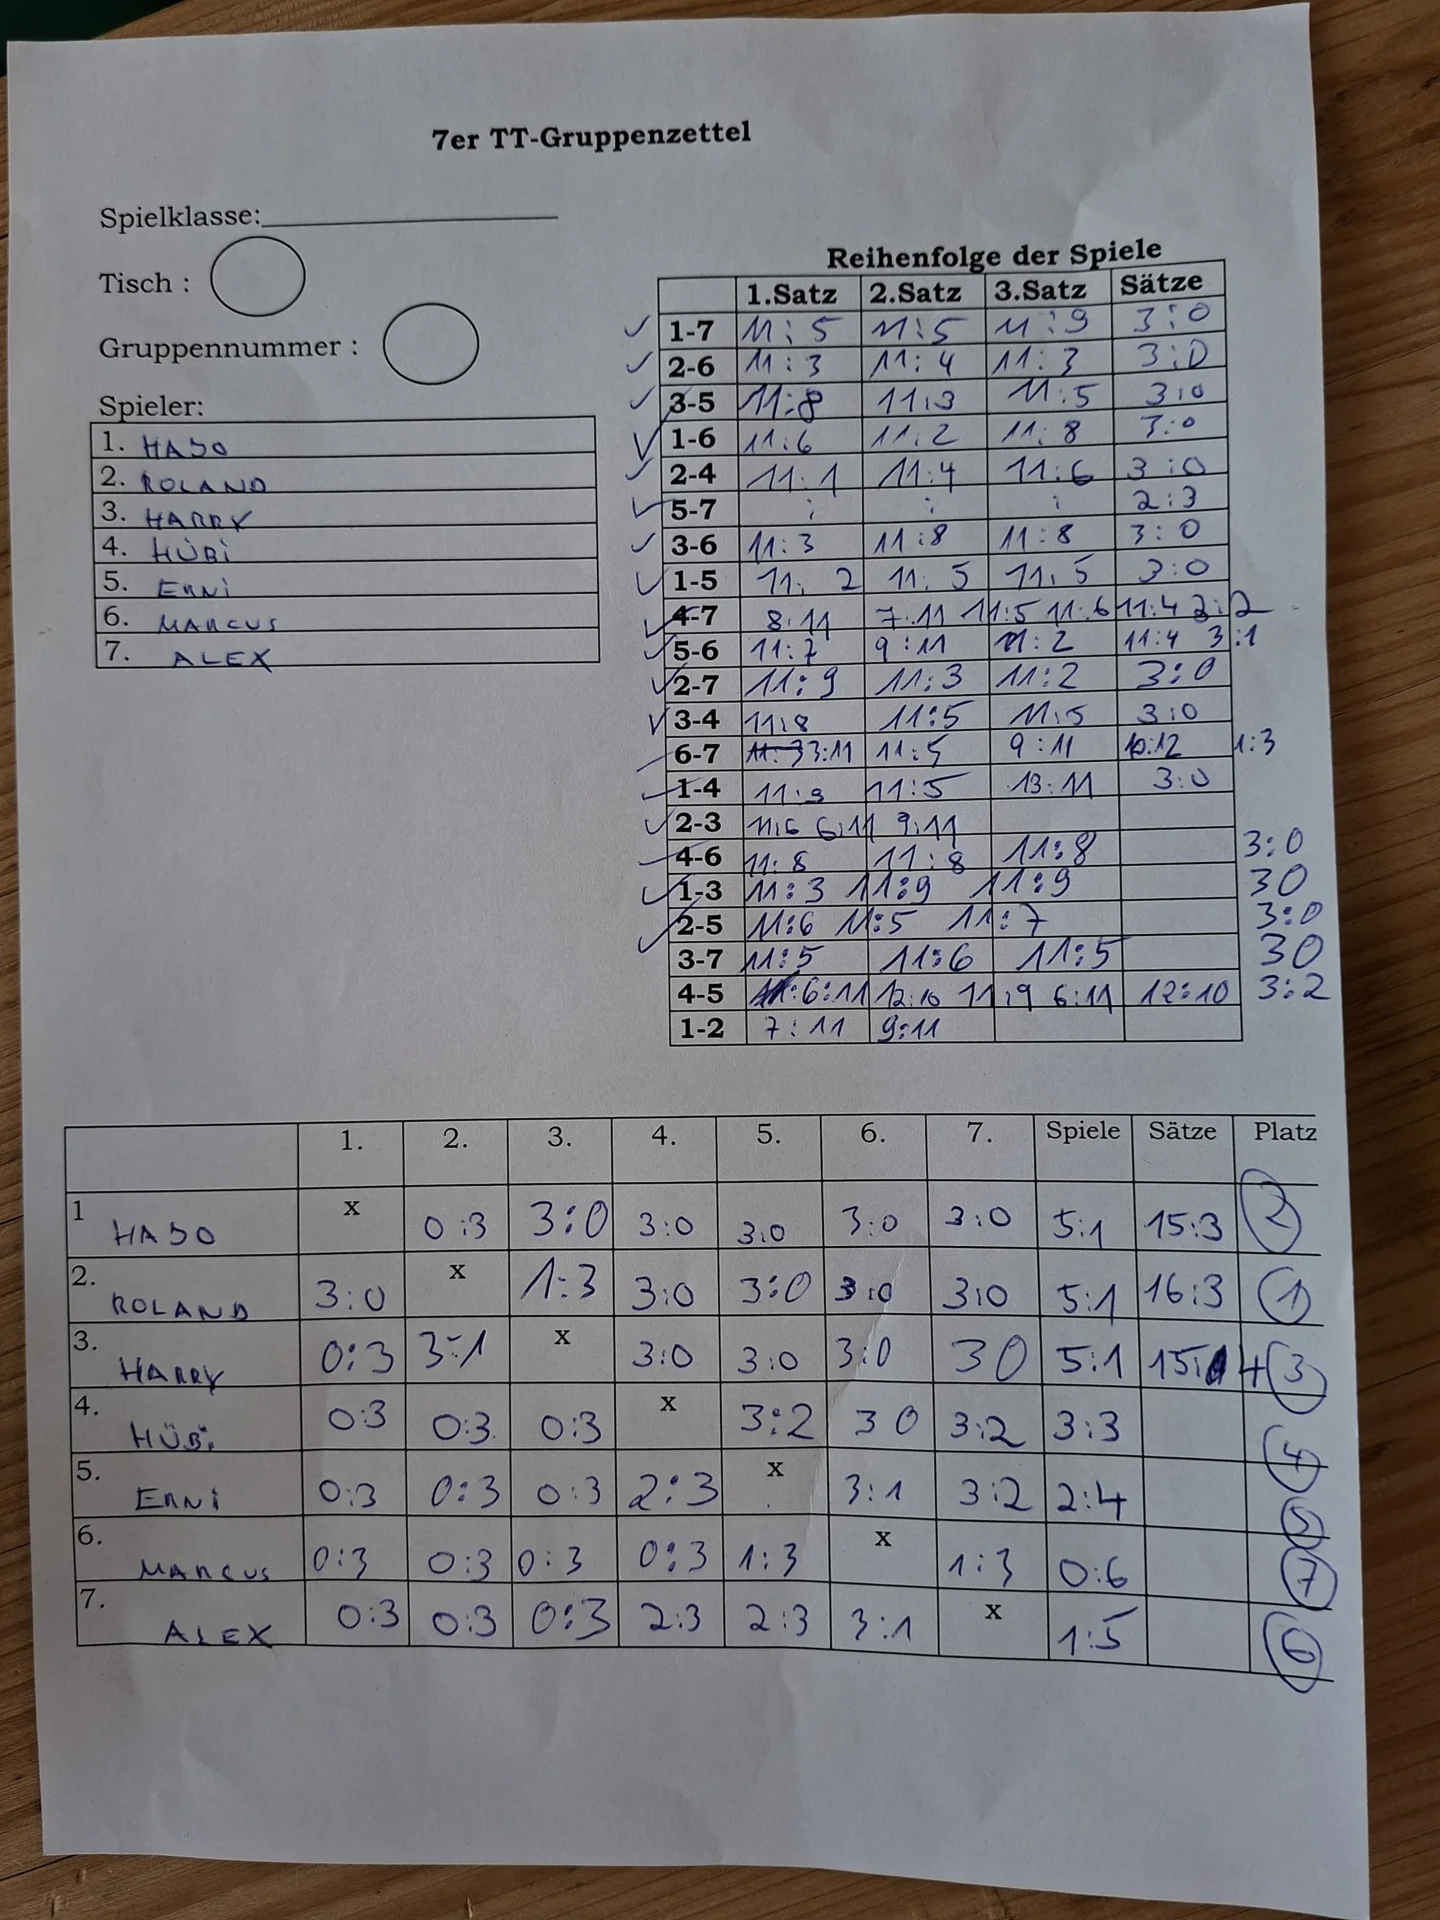 7er TT-Gruppenzettel
Spielklasse:
Tisch :
Gruppennummer :
Spieler:
1. HAJO
2. ROLAND
3. HARRY
4. HÜBI
5. ERNI
6. MARCUS
7. ALEX
Reihenfolge der Spiele
1.Satz 2.Satz 3.Satz Sätze
1-7 11:5 11:5 11:9 3:0
2-6 11:3 11:4 11:3 3:0
3-5 11:8 11:3 11:5 3:0
1-6 11:6 11:2 11:8 3:0
2-4 11:1 11:4 11:6 3:0
5-7 : : : 2:3
3-6 11:3 11:8 11:8 3:0
1-5 11:2 11:5 11:5 3:0
4-7 8:11 7:11 11:5 11:6 11:4 3:2
5-6 11:7 9:11 11:2 11:4 3:1
2-7 11:9 11:3 11:2 3:0
3-4 11:8 11:5 11:5 3:0
6-7 3:11 11:5 9:11 10:12 1:3
1-4 11:9 11:5 13:11 3:0
2-3 11:6 6:11 9:11
4-6 11:8 11:8 11:8 3:0
1-3 11:3 11:9 11:9 30
2-5 11:6 11:5 11:7 3:0
3-7 11:5 11:6 11:5 30
4-5 6:11 12:10 11:9 6:11 12:10 3:2
1-2 7:11 9:11
1. 2. 3. 4. 5. 6. 7. Spiele Sätze Platz
1 HAJO x 0:3 3:0 3:0 3:0 3:0 3:0 5:1 15:3 2
2. ROLAND 3:0 x 1:3 3:0 3:0 3:0 3:0 5:1 16:3 1
3. HARRY 0:3 3:1 x 3:0 3:0 3:0 30 5:1 15:4 3
4. HÜBI 0:3 0:3 0:3 x 3:2 30 3:2 3:3 4
5. ERNI 0:3 0:3 0:3 2:3 x 3:1 3:2 2:4 5
6. MARCUS 0:3 0:3 0:3 0:3 1:3 x 1:3 0:6 7
7. ALEX 0:3 0:3 0:3 2:3 2:3 3:1 x 1:5 6